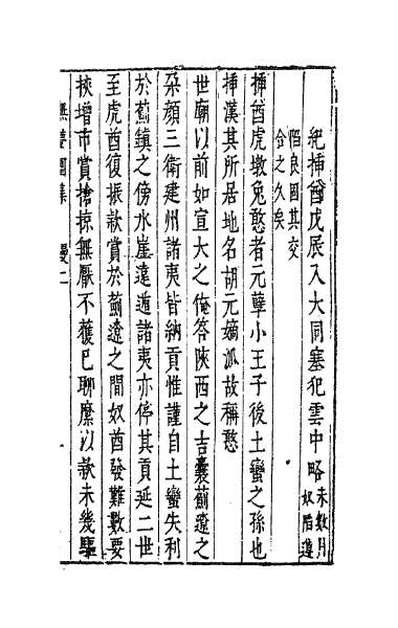 紀揷酋戊辰入大同塞犯雲中略未數月奴酋遵
陷良固其交
合之久矣
揷酋虎墩兔憨者元孽小王子後土蠻之孫也
揷漢其所居地名胡元嫡派故稱憨
世廟以前如宣大之俺答陝西之吉囊薊遼之
朵顏三衛建州諸夷皆納貢惟謹自土蠻失利
於舊鎮之傍水崖遠遁諸夷亦停其貢延二世
至虎酋復振款賞於薊遼之間奴酋發難數要
挾增市賞搶掠無厭不獲已聊縻以款未幾驅
無夢園集 漫二